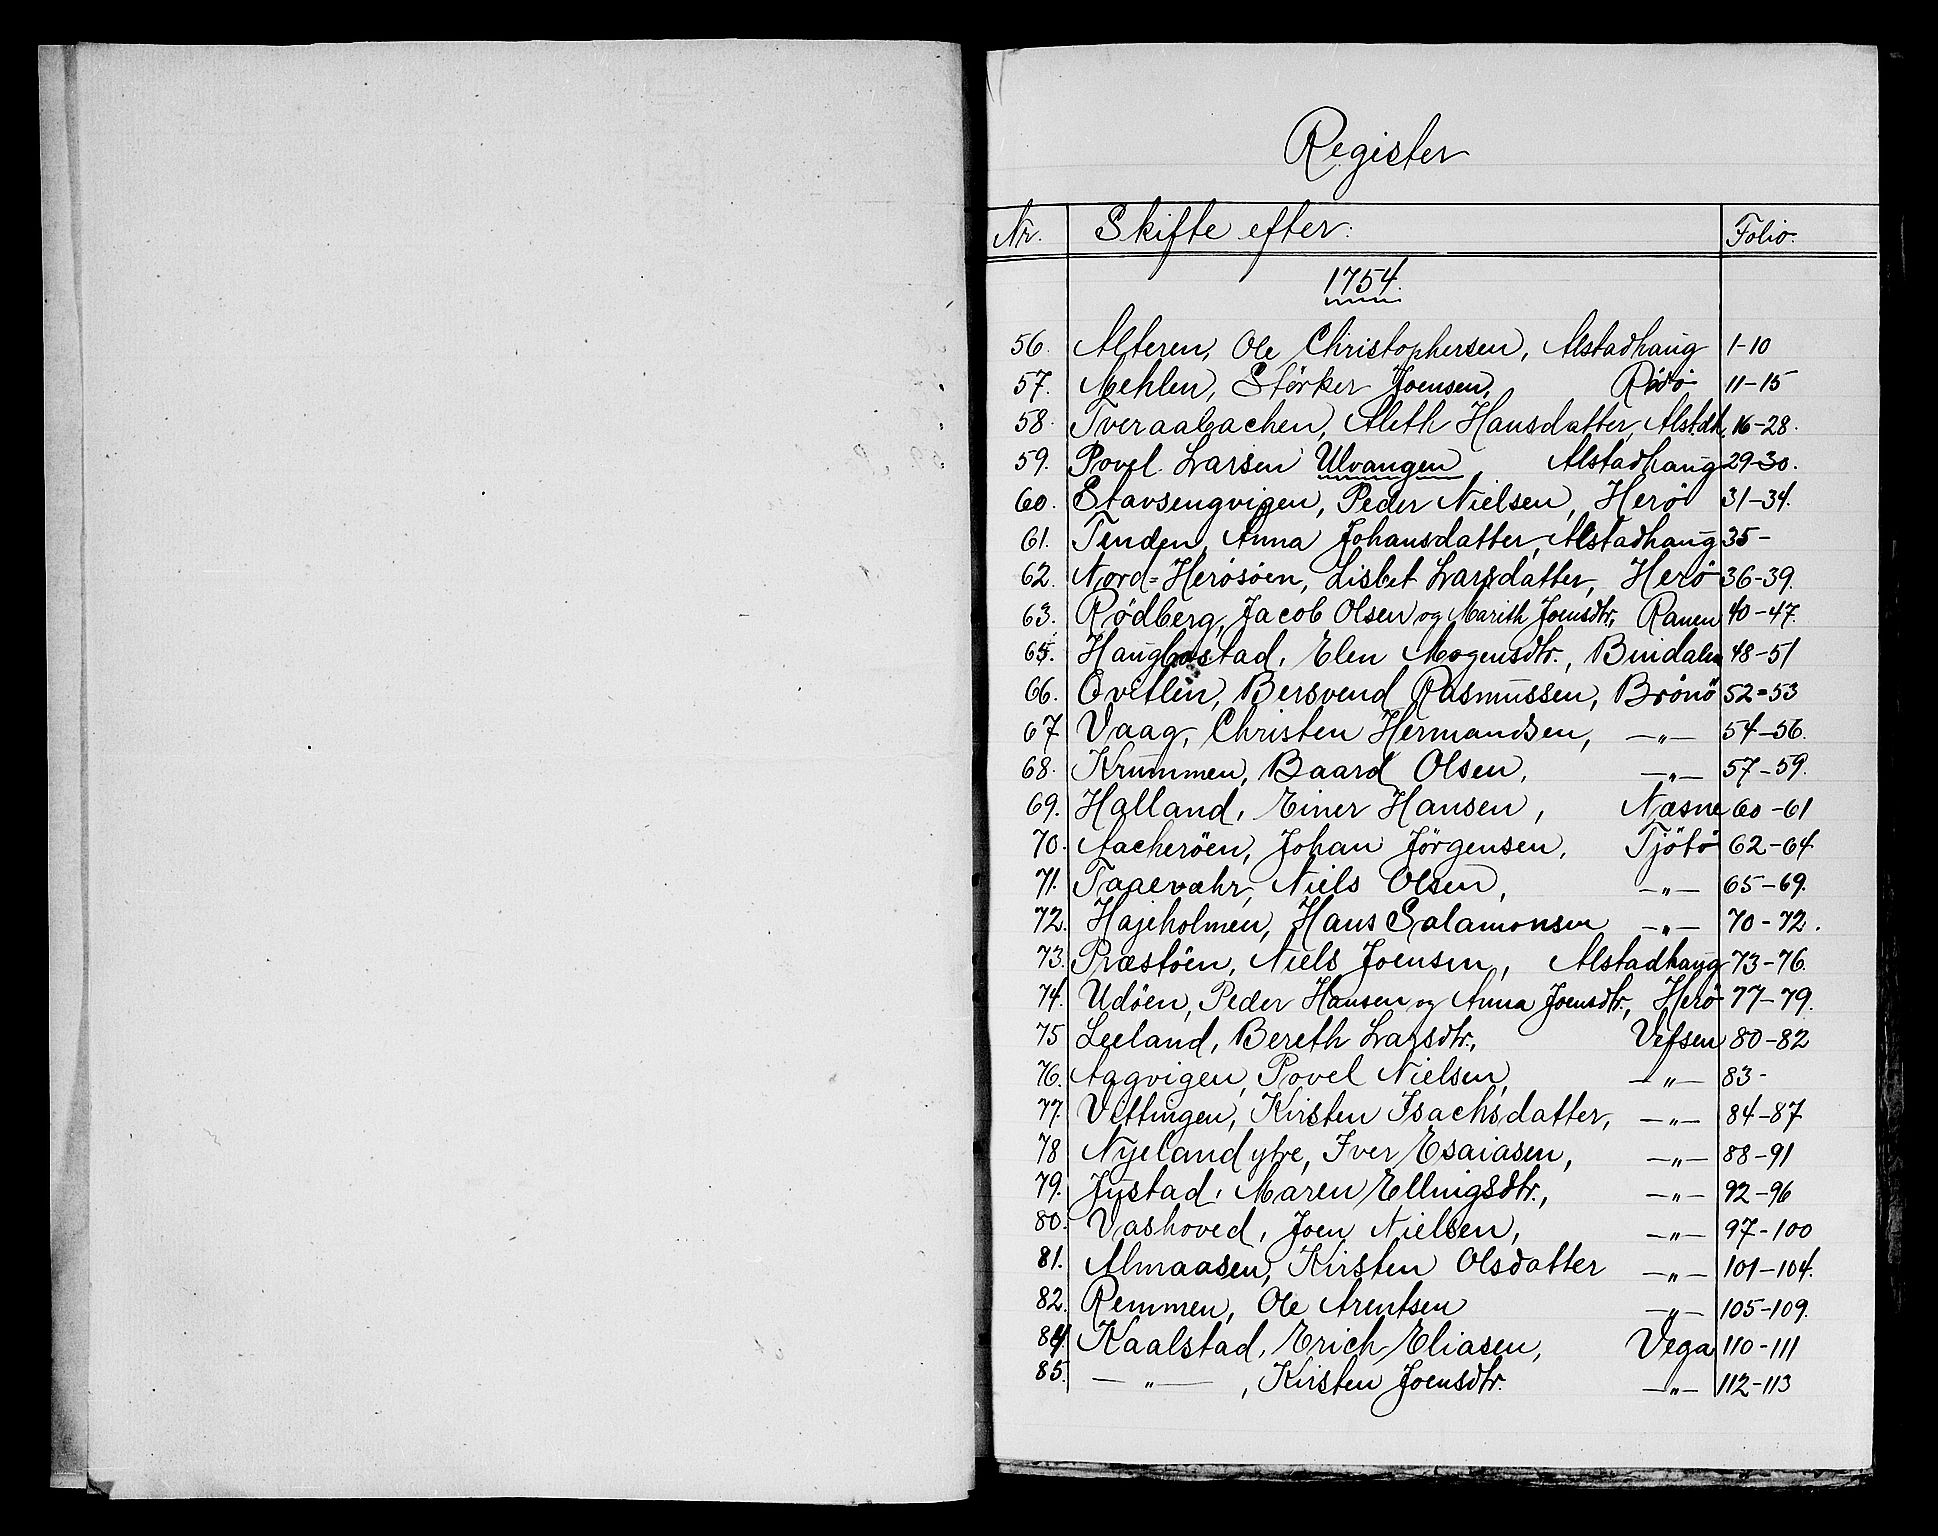 Register
Nr. Skifte efter: Folio.
1754.
56. Alteren, Ole Christophersen, Alstadhaug 1-10
57. Mehlen, Størker Joensen, Rödö 11-15
58. Tveraabachen, Aleth Hansdatter, Alstdh. 16-28.
59. Povel Larsen Ulvangen, Alstadhaug 29-30.
60. Stavsengvigen, Peder Nielsen, Herö 31-34.
61. Tenden, Anna Johansdatter, Alstadhaug 35-
62. Nord=Herösöen, Lisbet Larsdatter, Herö 36-39.
63. Rödberg, Jacob Olsen og Marith Joensdtr., Ranen 40-47.
65. Haugbostad, Elen Mogensdtr., Bindalen 48-51
66. Qvitlen, Bersvend Rasmussen, Brönö 52=53
67 Vaag, Christen Hermandsen, —„— 54-56.
68. Krummen, Baard Olsen, —„— 57-59.
69. Halland, Einer Hansen, Næsne 60-61
70. Aacheröen, Johan Jörgensen, Tjötö 62-64.
71. Taaevæhr, Niels Olsen, —„— 65-69.
72. Hajeholmen, Hans Salamonsen —„— 70-72.
73. Præstöen, Niels Joensen, Alstadhaug 73-76.
74. Udöen, Peder Hansen og Anna Joensdtr., Herö 77-79.
75 Leeland, Bereth Larsdtr., Vefsen 80-82
76. Aagvigen, Povel Nielsen, —„— 83-
77. Vittingen, Kirsten Isachsdatter, —„— 84-87
78 Nyeland ytre, Iver Esaiasen, —„— 88-91
79. Jystad, Maren Ellingsdtr., —„— 92-96
80. Vashoved, Joen Nielsen, —„— 97-100
81. Almaasen, Kirsten Olsdatter —„— 101-104.
82. Remmen, Ole Arentsen —„— 105-109.
84. Kaalstad, Erich Eliasen, Vega 110-111
85. —„—, Kirsten Joensdtr. —„— 112-113